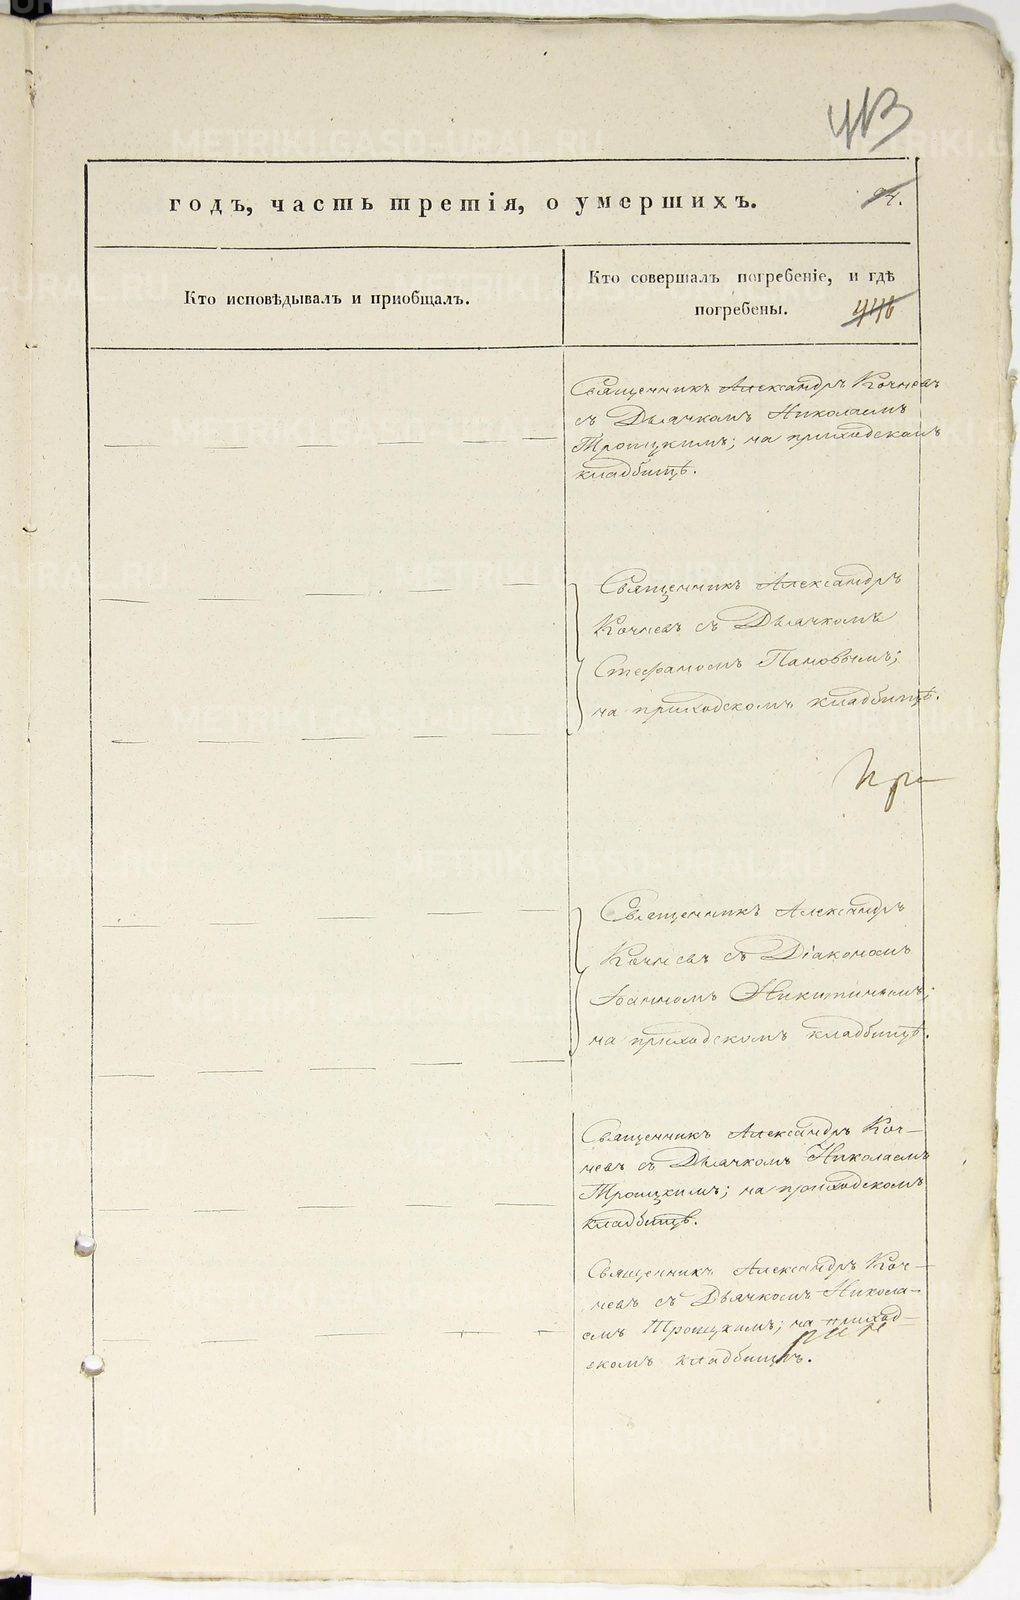 413
годъ, часть третія, о умершихъ.
Кто исповѣдывалъ и пріобщалъ.
Кто совершалъ погребеніе, и гдѣ
погребены.
446
Священникъ Александръ Кочневъ
съ Дьячкомъ Николаемъ
Троицкимъ; на приходскомъ
кладбищѣ.
Священникъ Александръ
Кочневъ съ Дьячкомъ
Стефаномъ Пановымъ;
на приходскомъ кладбищѣ.
Священникъ Александръ
Кочневъ съ Діакономъ
Іоанномъ Никитинымъ;
на приходскомъ кладбищѣ.
Священникъ Александръ Коч-
невъ съ Дьячкомъ Николаемъ
Троицкимъ; на приходскомъ
кладбищѣ.
Священникъ Александръ Коч-
невъ съ Дьячкомъ Никола-
емъ Троицкимъ; на приход-
скомъ кладбищѣ.
METRIKI.GASO-URAL.RU